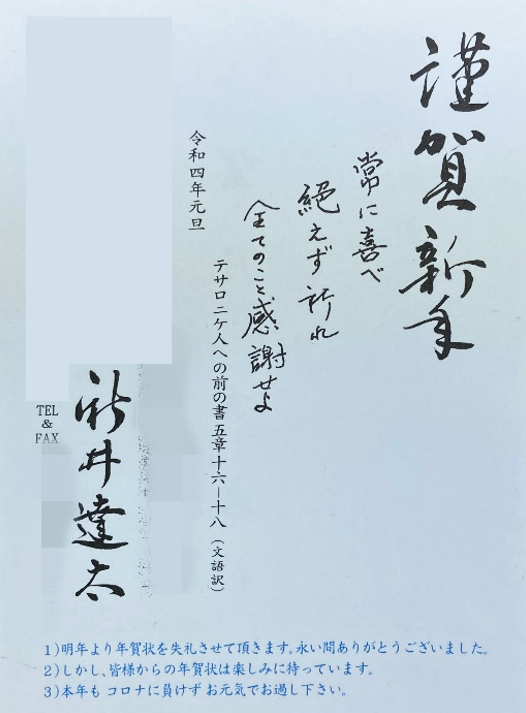 謹賀新年
常に喜べ
絶えず祈れ
全てのこと感謝せよ
テサロニケ人への前の書五章十六―十八（文語訳）
令和四年元旦
新井達太
TEL
&
FAX
1)明年より年賀状を失礼させて頂きます。永い間ありがとうございました。
2)しかし、皆様からの年賀状は楽しみに待っています。
3)本年も コロナに負けず お元気でお過し下さい。